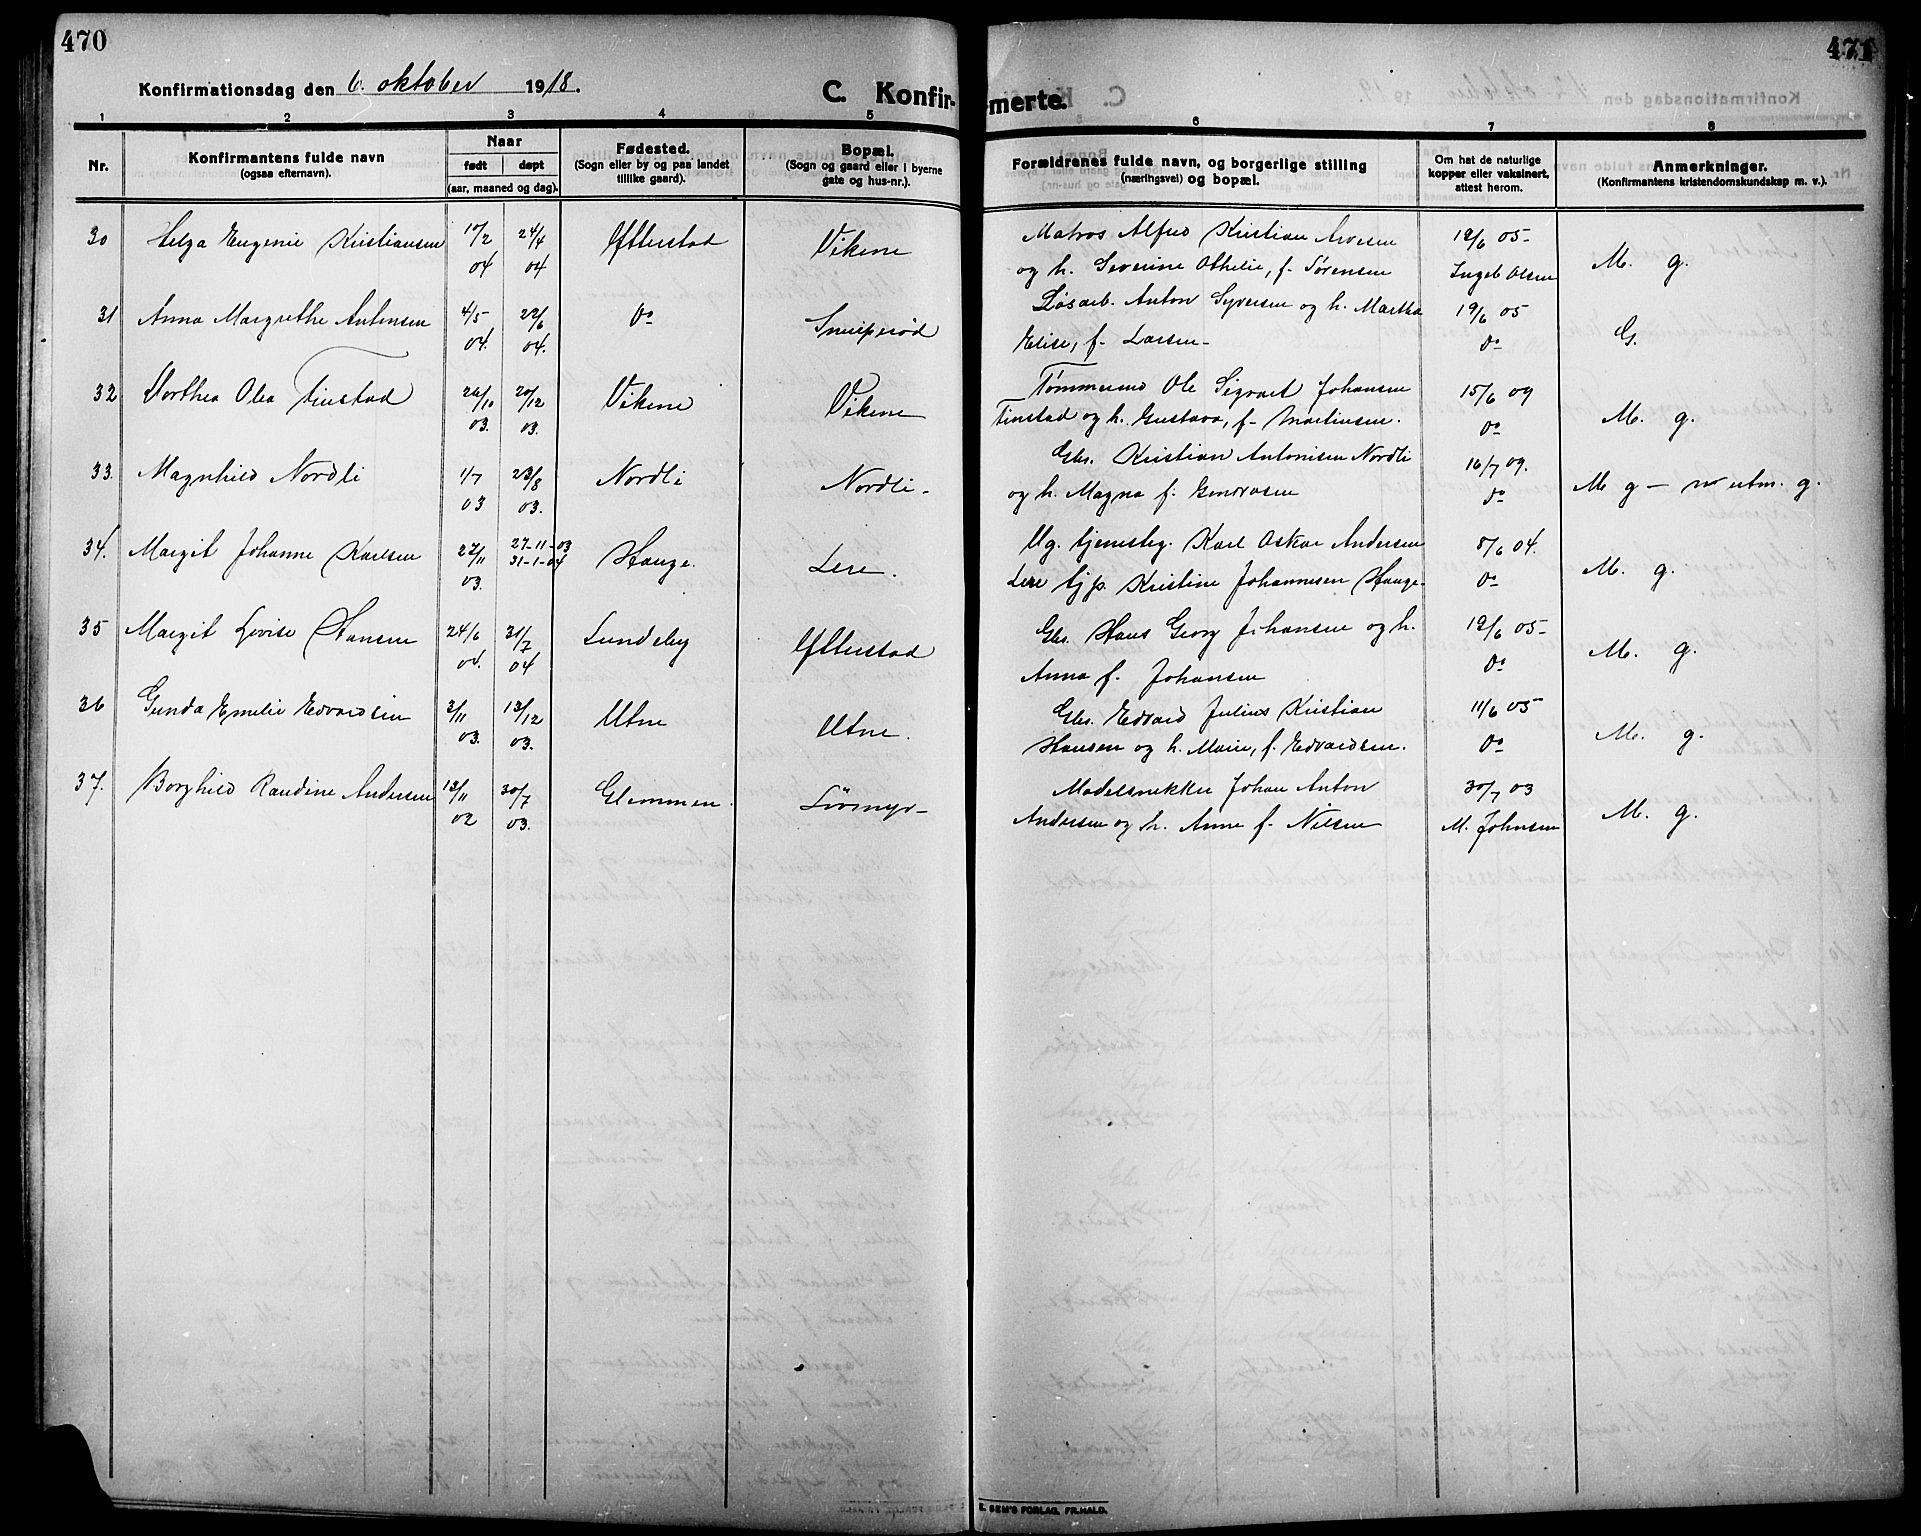 470
471
Konfirmationsdag den 6. oktober 1918.
C. Konfir-
-merte.
1 2 3 4 5 6 7 8
Nr.
Konfirmantens fulde navn
(ogsaa efternavn).
Naar
født døpt
(aar, maaned og dag).
Fødested.
(Sogn eller by og paa landet
tillike gaard).
Bopæl.
(Sogn og gaard eller i byerne
gate og hus-nr.).
Forældrenes fulde navn, og borgerlige stilling
(næringsvei) og bopæl.
Om hat de naturlige
kopper eller vaksinert,
attest herom.
Anmerkninger.
(Konfirmantens kristendomskundskap m. v.).
30 Helga Eugenie Kristiansen 10/2 24/4 Efterstad Vikene Matros Alfred Kristian Arvesen 19/6 05-
04 04 og h. Severine Othelie, f. Sørensen Ingeb Olsen M. g.
31 Anna Margrethe Antonsen 4/5 22/6 Do Løsarb. Anton Syversen og h. Martha 19/6 05
04. 04. Elise, f. Larsen- Do G.
32 Dorthea Olea Tinstad 26/10 20/12 Vikene Vikene Tømmermd Ole Sigvart Johansen 15/6 09
03. 03. Tinstad og h. Gustava, f- Martinsen. Do M. g.
33. Magnhild Nordli 1/7 23/8 Nordli Nordli- Gbr. Kristian Antonisen Nordli 16/7 09.
03 03. og h. Magna f. Do M g -
34. Margit Johanne Karlsen 27/11 27-11-03 Hauge. Lere. Ug. tjenestg. Karl Oskar Andersen 8/6 04.
03. 31-1-04 Lere tjp. Kristine Johannesen Hauge. Do M. g.
35 Margit Lovise Hansen 24/6 31/7 Lundeby Efterstad Gbr. Hans Georg Johansen og h. 19/6 05-
04. 04 Anna f. Johansen Do M. g.
36 Gunda Emelie Edvardsen 3/11 13/12 Utne Utne. Gbr. Edvard Julius Kristian 11/6 05
03. 03. Hansen og h. Marie, f. Edvardsen. Do M. g.
37. Borghild Randine Andersen 13/11 30/7 Glemmen. Modelsnekker Johan Anton 30/7 03
02 03. Andersen og h. Anne f- Nilsen M. Johnsen M. g.
E. SEM'S FORLAG, FR.HALD.